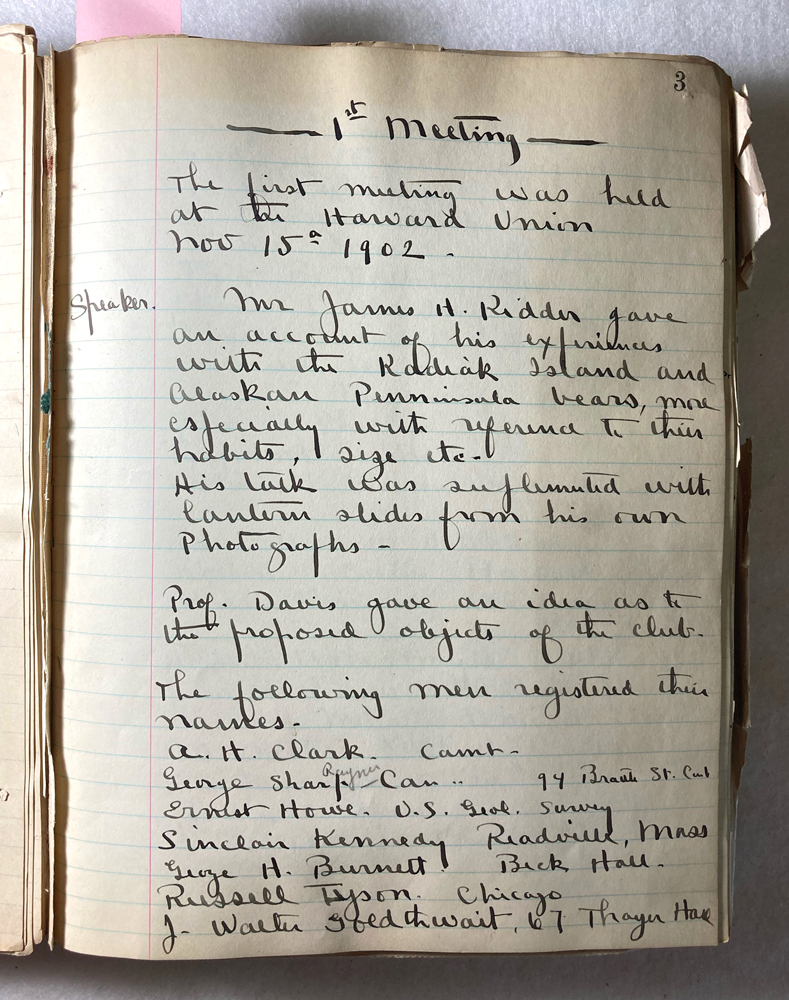 3
1st Meeting
The first meeting was held
at the Harvard Union
Nov 15a 1902.
Speaker. Mr James H. Kidder gave
an account of his experiences
with the Kadiak Island and
Alaskan Penninsula bears, more
especially with reference to their
habits, size etc.
His talk was suplimented with
lantern slides from his own
Photographs -
Prof. Davis gave an idea as to
the proposed objects of the club.
The following men registered their
names.
A. H. Clark. Camb.
Rayner
George Sharp Cam .. 94 Brattle St. Camb
Ernest Howe. U.S. Geol. Survey
Sinclair Kennedy Readville, Mass
George H. Burnett. Beck Hall.
Russell Tyson. Chicago
J. Walter Goldthwait, 67 Thayer Hall